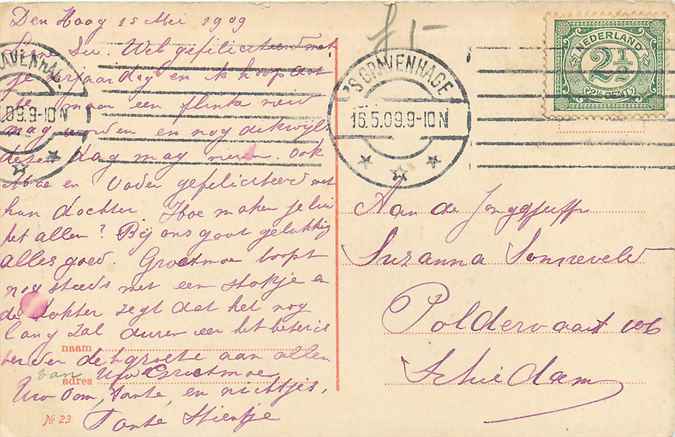 Den Haag 15 Mei 1909
Sus. Wel gefeliciteerd met
je verjaardag en ik hoop dat
je maar een flinke meid
mag worden en nog dikwijls
dezen dag mag vieren. ook
Moe en Vader gefeliciteerd met
hun dochter. Hoe maken jelui
het allen? Bij ons gaat gelukkig
alles goed. Grootmoe loopt
nog steeds met een stokje en
de dokter zegt dat het nog
lang zal duren eer het beter is
de groete aan allen
van Uw Grootmoe
Uw Oom, Tante, en nichtjes,
Tante Stientje
naam
adres
№ 23
f 1-
'S GRAVENHAGE
16.5.09.9-10N
NEDERLAND
2½
CENT
AVENHAG
.09.9-10N
Aan de Jongejuffr
Suzanna Sonneveld
Poldervaart
Schiedam